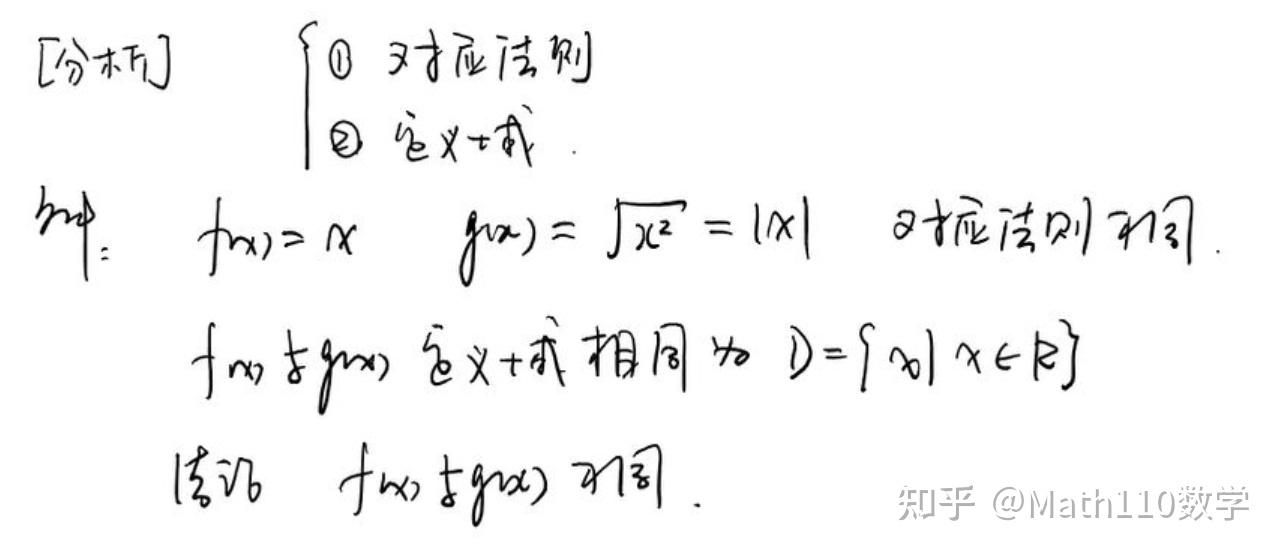 [分析] { ① 对应法则
② 定义域.
解: f(x)=x g(x)=√x² =|x| 对应法则不同.
f(x)与g(x)定义域相同为 D={x| x∈R}
结论 f(x)与g(x)不同.
知乎 @Math110数学